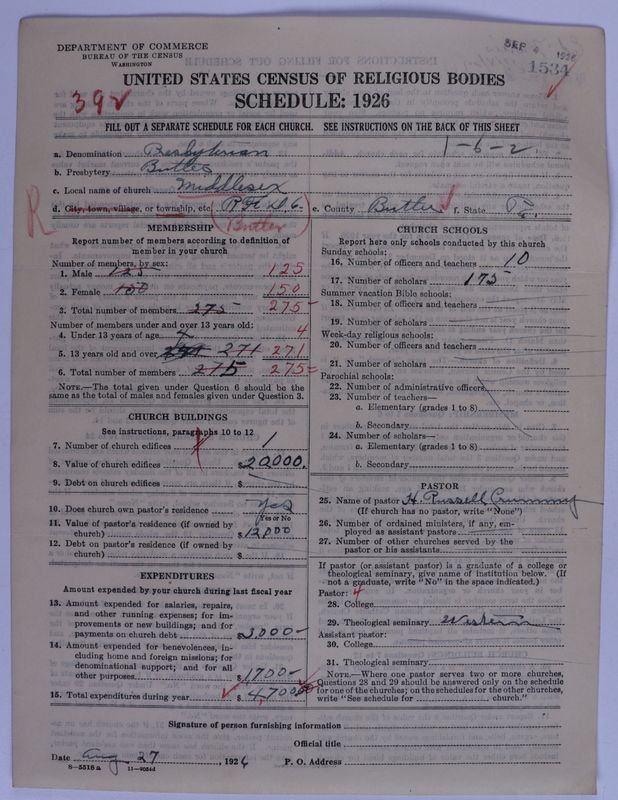 DEPARTMENT OF COMMERCE
BUREAU OF THE CENSUS
WASHINGTON
SEP 1926
1534
UNITED STATES CENSUS OF RELIGIOUS BODIES
SCHEDULE: 1926
392
FILL OUT A SEPARATE SCHEDULE FOR EACH CHURCH. SEE INSTRUCTIONS ON THE BACK OF THIS SHEET
1-6-2.
a. Denomination Presbyterian
b. Presbytery Butler
c. Local name of church Middlesex
d. City, town, village, or township, etc. R.F.D. 6. e. County Butler f. State Pa.
R (Butler)
MEMBERSHIP
Report number of members according to definition of
member in your church
Number of members, by sex:
1. Male 125 125
2. Female 150 150
3. Total number of members 275 275
Number of members under and over 13 years old:
4. Under 13 years of age 4 4
5. 13 years old and over 271 271
6. Total number of members 275 275=
NOTE.—The total given under Question 6 should be the
same as the total of males and females given under Question 3.
CHURCH BUILDINGS
See instructions, paragraphs 10 to 12
7. Number of church edifices 1
8. Value of church edifices $20000.
9. Debt on church edifices $
10. Does church own pastor's residence Yes
Yes or No
11. Value of pastor's residence (if owned by
church) $12000
12. Debt on pastor's residence (if owned by
church) $
EXPENDITURES
Amount expended by your church during last fiscal year
13. Amount expended for salaries, repairs,
and other running expenses; for im-
provements or new buildings; and for
payments on church debt $3,000-
14. Amount expended for benevolences, in-
cluding home and foreign missions; for
denominational support; and for all
other purposes $1,700-
15. Total expenditures during year $4,700
CHURCH SCHOOLS
Report here only schools conducted by this church
Sunday schools:
16. Number of officers and teachers 10
17. Number of scholars 175
Summer vacation Bible schools:
18. Number of officers and teachers
19. Number of scholars
Week-day religious schools:
20. Number of officers and teachers
21. Number of scholars
Parochial schools:
22. Number of administrative officers
23. Number of teachers—
a. Elementary (grades 1 to 8)
b. Secondary
24. Number of scholars—
a. Elementary (grades 1 to 8)
b. Secondary
PASTOR
25. Name of pastor H. Russell Crummy
(If church has no pastor, write "None")
26. Number of ordained ministers, if any, em-
ployed as assistant pastors
27. Number of other churches served by the
pastor or his assistants
If pastor (or assistant pastor) is a graduate of a college or
theological seminary, give name of institution below. (If
not a graduate, write "No" in the space indicated.)
Pastor: 4
28. College
29. Theological seminary Western
Assistant pastor:
30. College
31. Theological seminary
NOTE.—Where one pastor serves two or more churches,
Questions 28 and 29 should be answered only on the schedule
for one of the churches; on the schedules for the other churches,
write "See schedule for church."
Signature of person furnishing information
Official title
Date Aug 27, 1926 P. O. Address
8-5518a 11-9064d